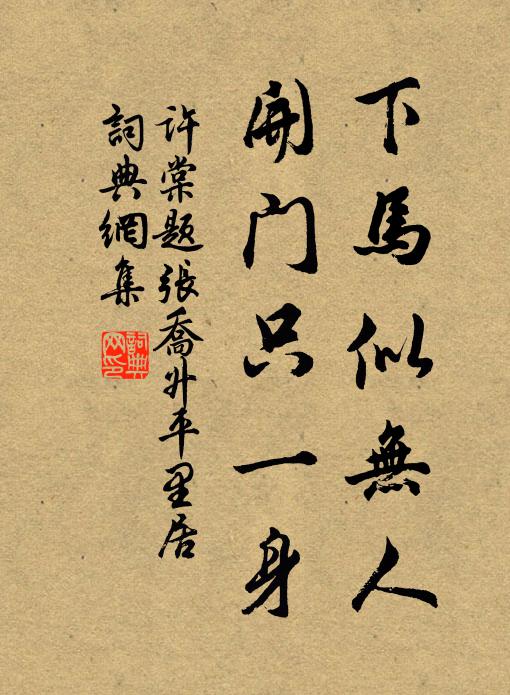 下馬似無人
開門只一身
許棠題張喬升平里居
詞典網集
詞典
网印